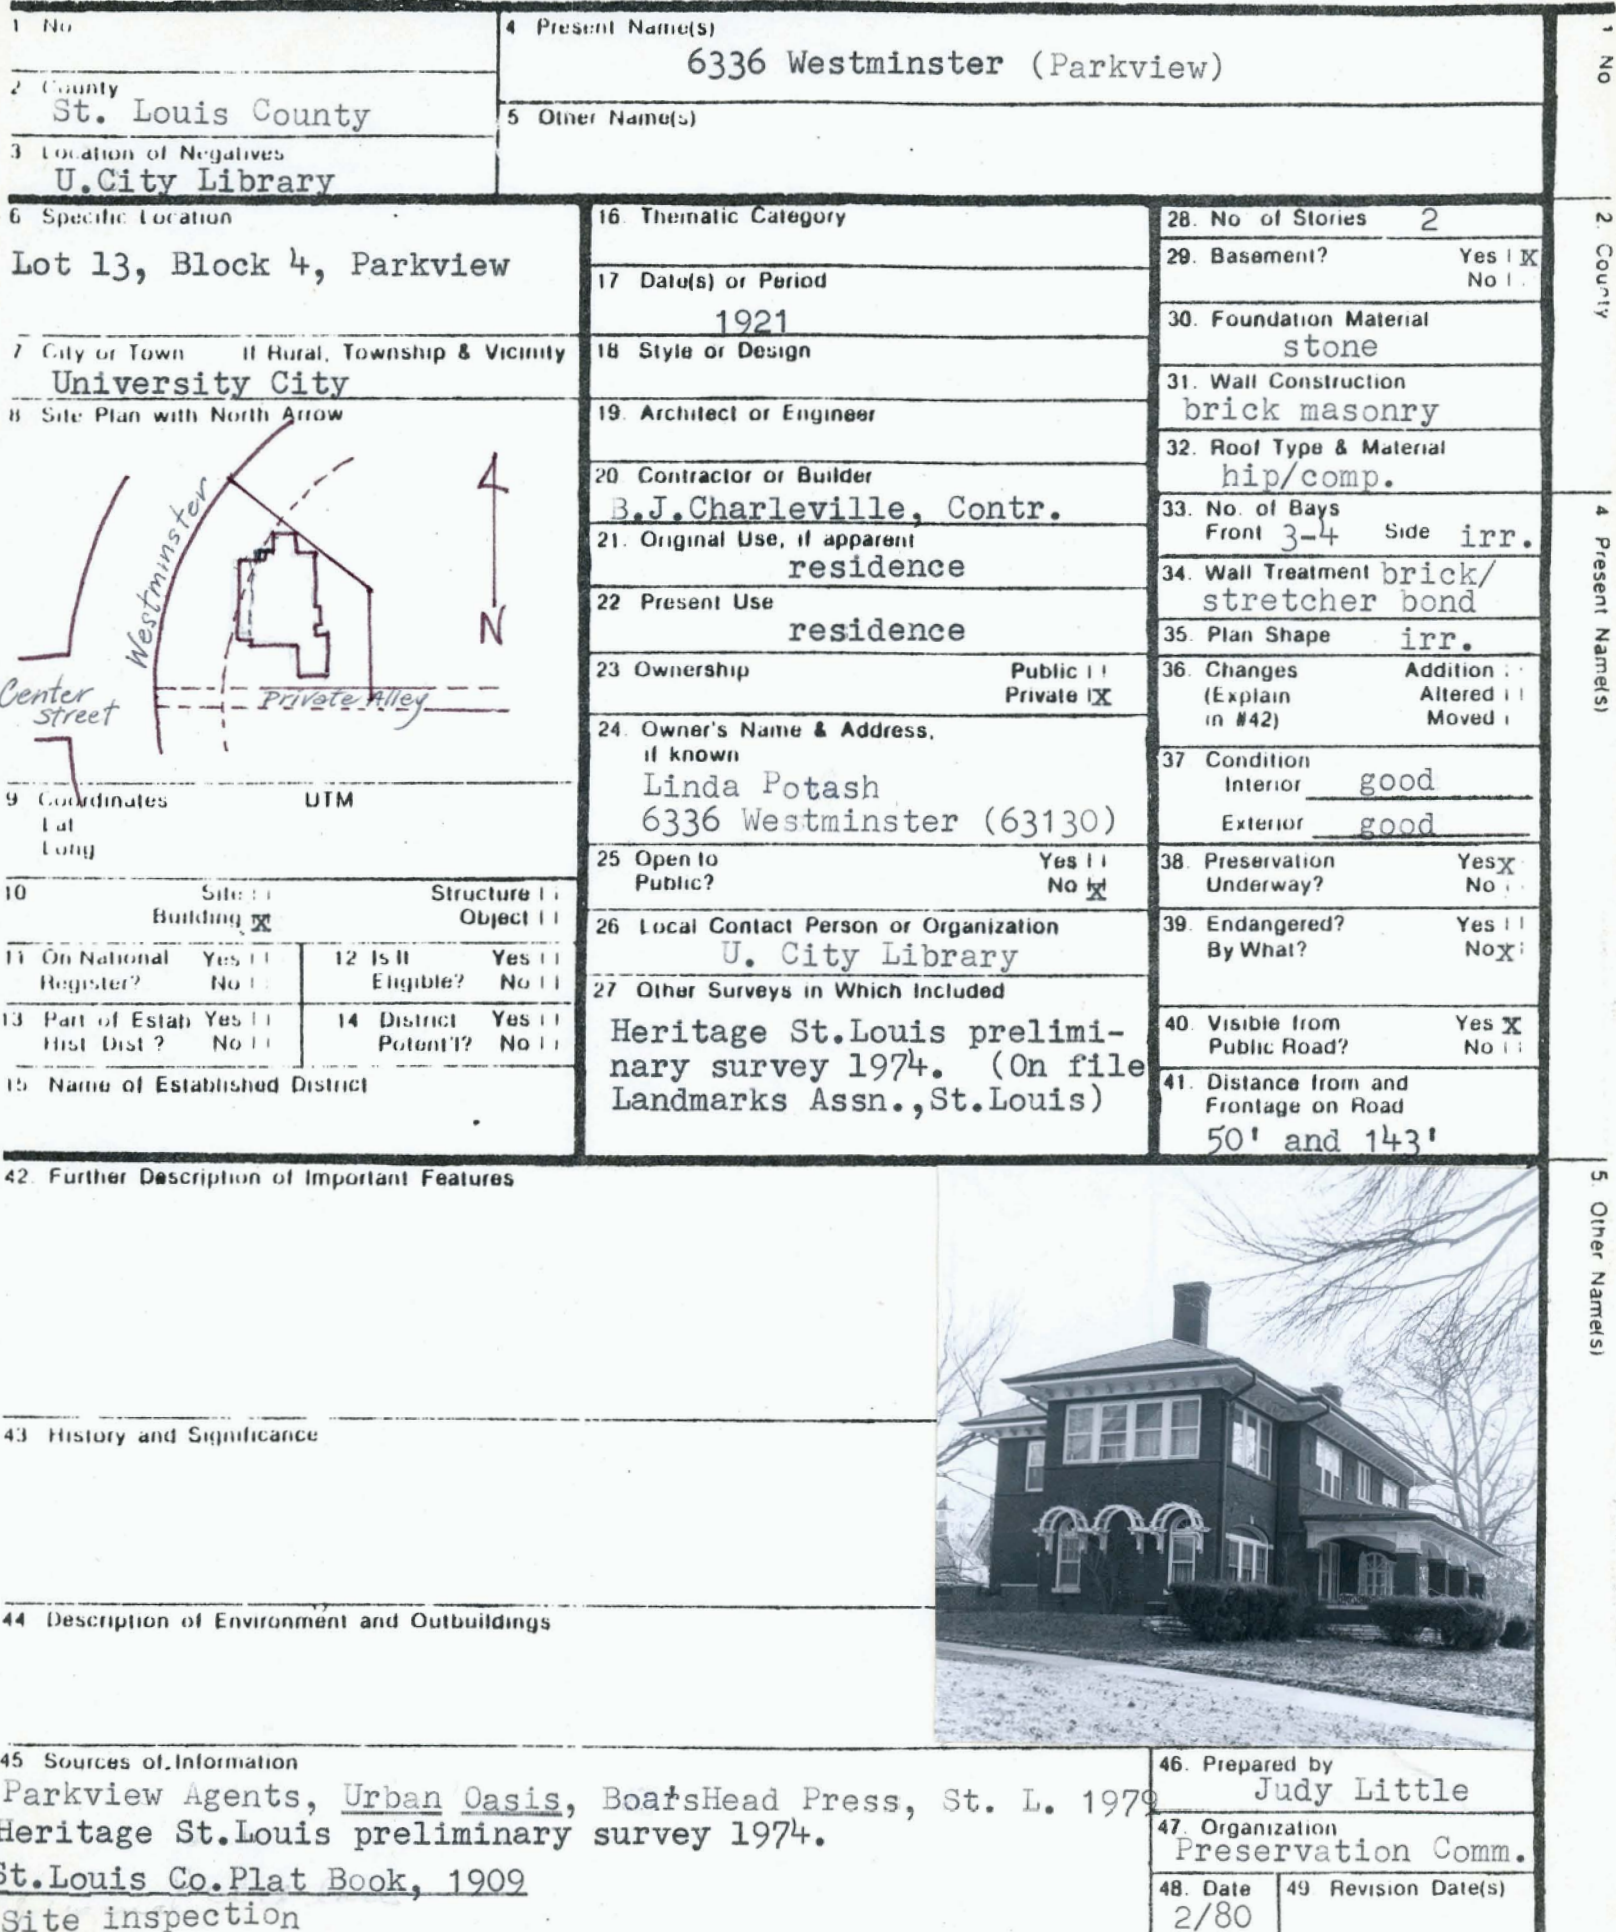 1 No
4 Present Name(s)
6336 Westminster (Parkview)
2 County
St. Louis County
5 Other Name(s)
3 Location of Negatives
U.City Library
6 Specific Location
Lot 13, Block 4, Parkview
7 City or Town If Rural, Township & Vicinity
University City
8 Site Plan with North Arrow
Westminster
N
Center
street
Private Alley
9 Coordinates UTM
Lat
Long
10 Site Structure
Building X Object
11 On National Yes
Register? No
12 Is It Yes
Eligible? No
13 Part of Estab Yes
Hist Dist ? No
14 District Yes
Potent'l? No
15 Name of Established District
16. Thematic Category
17 Date(s) or Period
1921
18 Style or Design
19. Architect or Engineer
20 Contractor or Builder
B.J.Charleville, Contr.
21. Original Use, if apparent
residence
22 Present Use
residence
23 Ownership Public
Private X
24. Owner's Name & Address,
if known
Linda Potash
6336 Westminster (63130)
25 Open to Yes
Public? No X
26 Local Contact Person or Organization
U. City Library
27 Other Surveys in Which Included
Heritage St.Louis prelimi-
nary survey 1974. (On file
Landmarks Assn.,St.Louis)
28. No of Stories 2
29. Basement? Yes X
No
30. Foundation Material
stone
31. Wall Construction
brick masonry
32. Roof Type & Material
hip/comp.
33. No. of Bays
Front 3-4 Side irr.
34. Wall Treatment brick/
stretcher bond
35. Plan Shape irr.
36. Changes Addition
(Explain Altered
in #42) Moved
37 Condition
Interior good
Exterior good
38. Preservation Yes X
Underway? No
39. Endangered? Yes
By What? No X
40. Visible from Yes X
Public Road? No
41. Distance from and
Frontage on Road
50' and 143'
42. Further Description of Important Features
43 History and Significance
44 Description of Environment and Outbuildings
45 Sources of Information
Parkview Agents, Urban Oasis, BoarsHead Press, St. L. 1979
Heritage St.Louis preliminary survey 1974.
St.Louis Co.Plat Book, 1909
Site inspection
46. Prepared by
Judy Little
47. Organization
Preservation Comm.
48. Date
2/80
49 Revision Date(s)
1 No
2. County
4 Present Name(s)
5. Other Name(s)